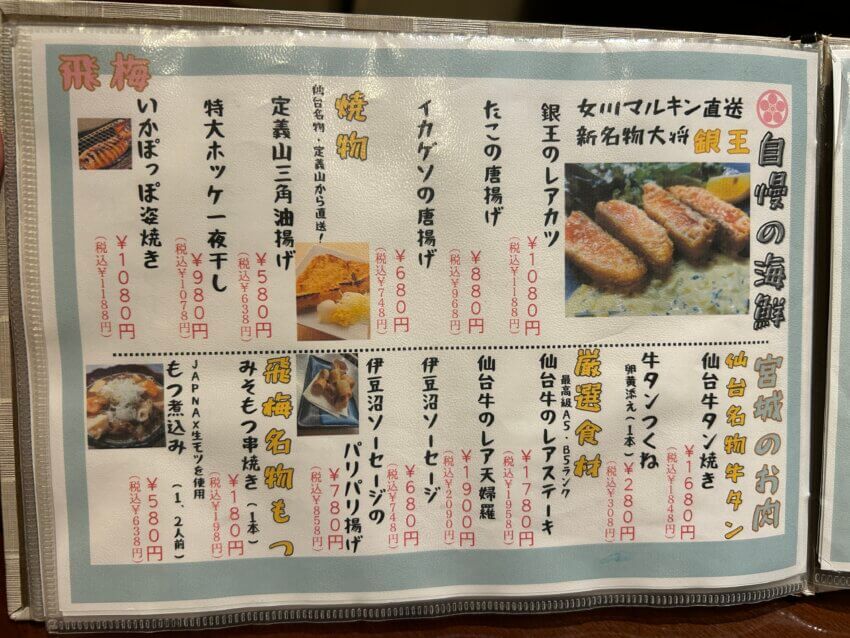 飛梅
自慢の海鮮
女川マルキン直送
新名物大将 銀王
銀王のレアカツ
¥1080円
(税込¥1188円)
たこの唐揚げ
¥880円
(税込¥968円)
イカゲソの唐揚げ
¥680円
(税込¥748円)
焼物
仙台名物・定義山から直送!
定義山三角油揚げ
¥580円
(税込¥638円)
特大ホッケ一夜干し
¥980円
(税込¥1078円)
いかぽっぽ姿焼き
¥1080円
(税込¥1188円)
宮城のお肉
仙台名物牛タン
仙台牛タン焼き
¥1680円
(税込¥1848円)
牛タンつくね
卵黄添え(1本)
¥280円
(税込¥308円)
厳選食材
最高級A5・B5ランク
仙台牛のレアステーキ
¥1780円
(税込¥1958円)
仙台牛のレア天婦羅
¥1900円
(税込¥2090円)
伊豆沼ソーセージ
¥680円
(税込¥748円)
伊豆沼ソーセージの
パリパリ揚げ
¥780円
(税込¥858円)
飛梅名物もつ
みそもつ串焼き(1本)
¥180円
(税込¥198円)
JAPNAX生モツを使用
もつ煮込み(1、2人前)
¥580円
(税込¥638円)